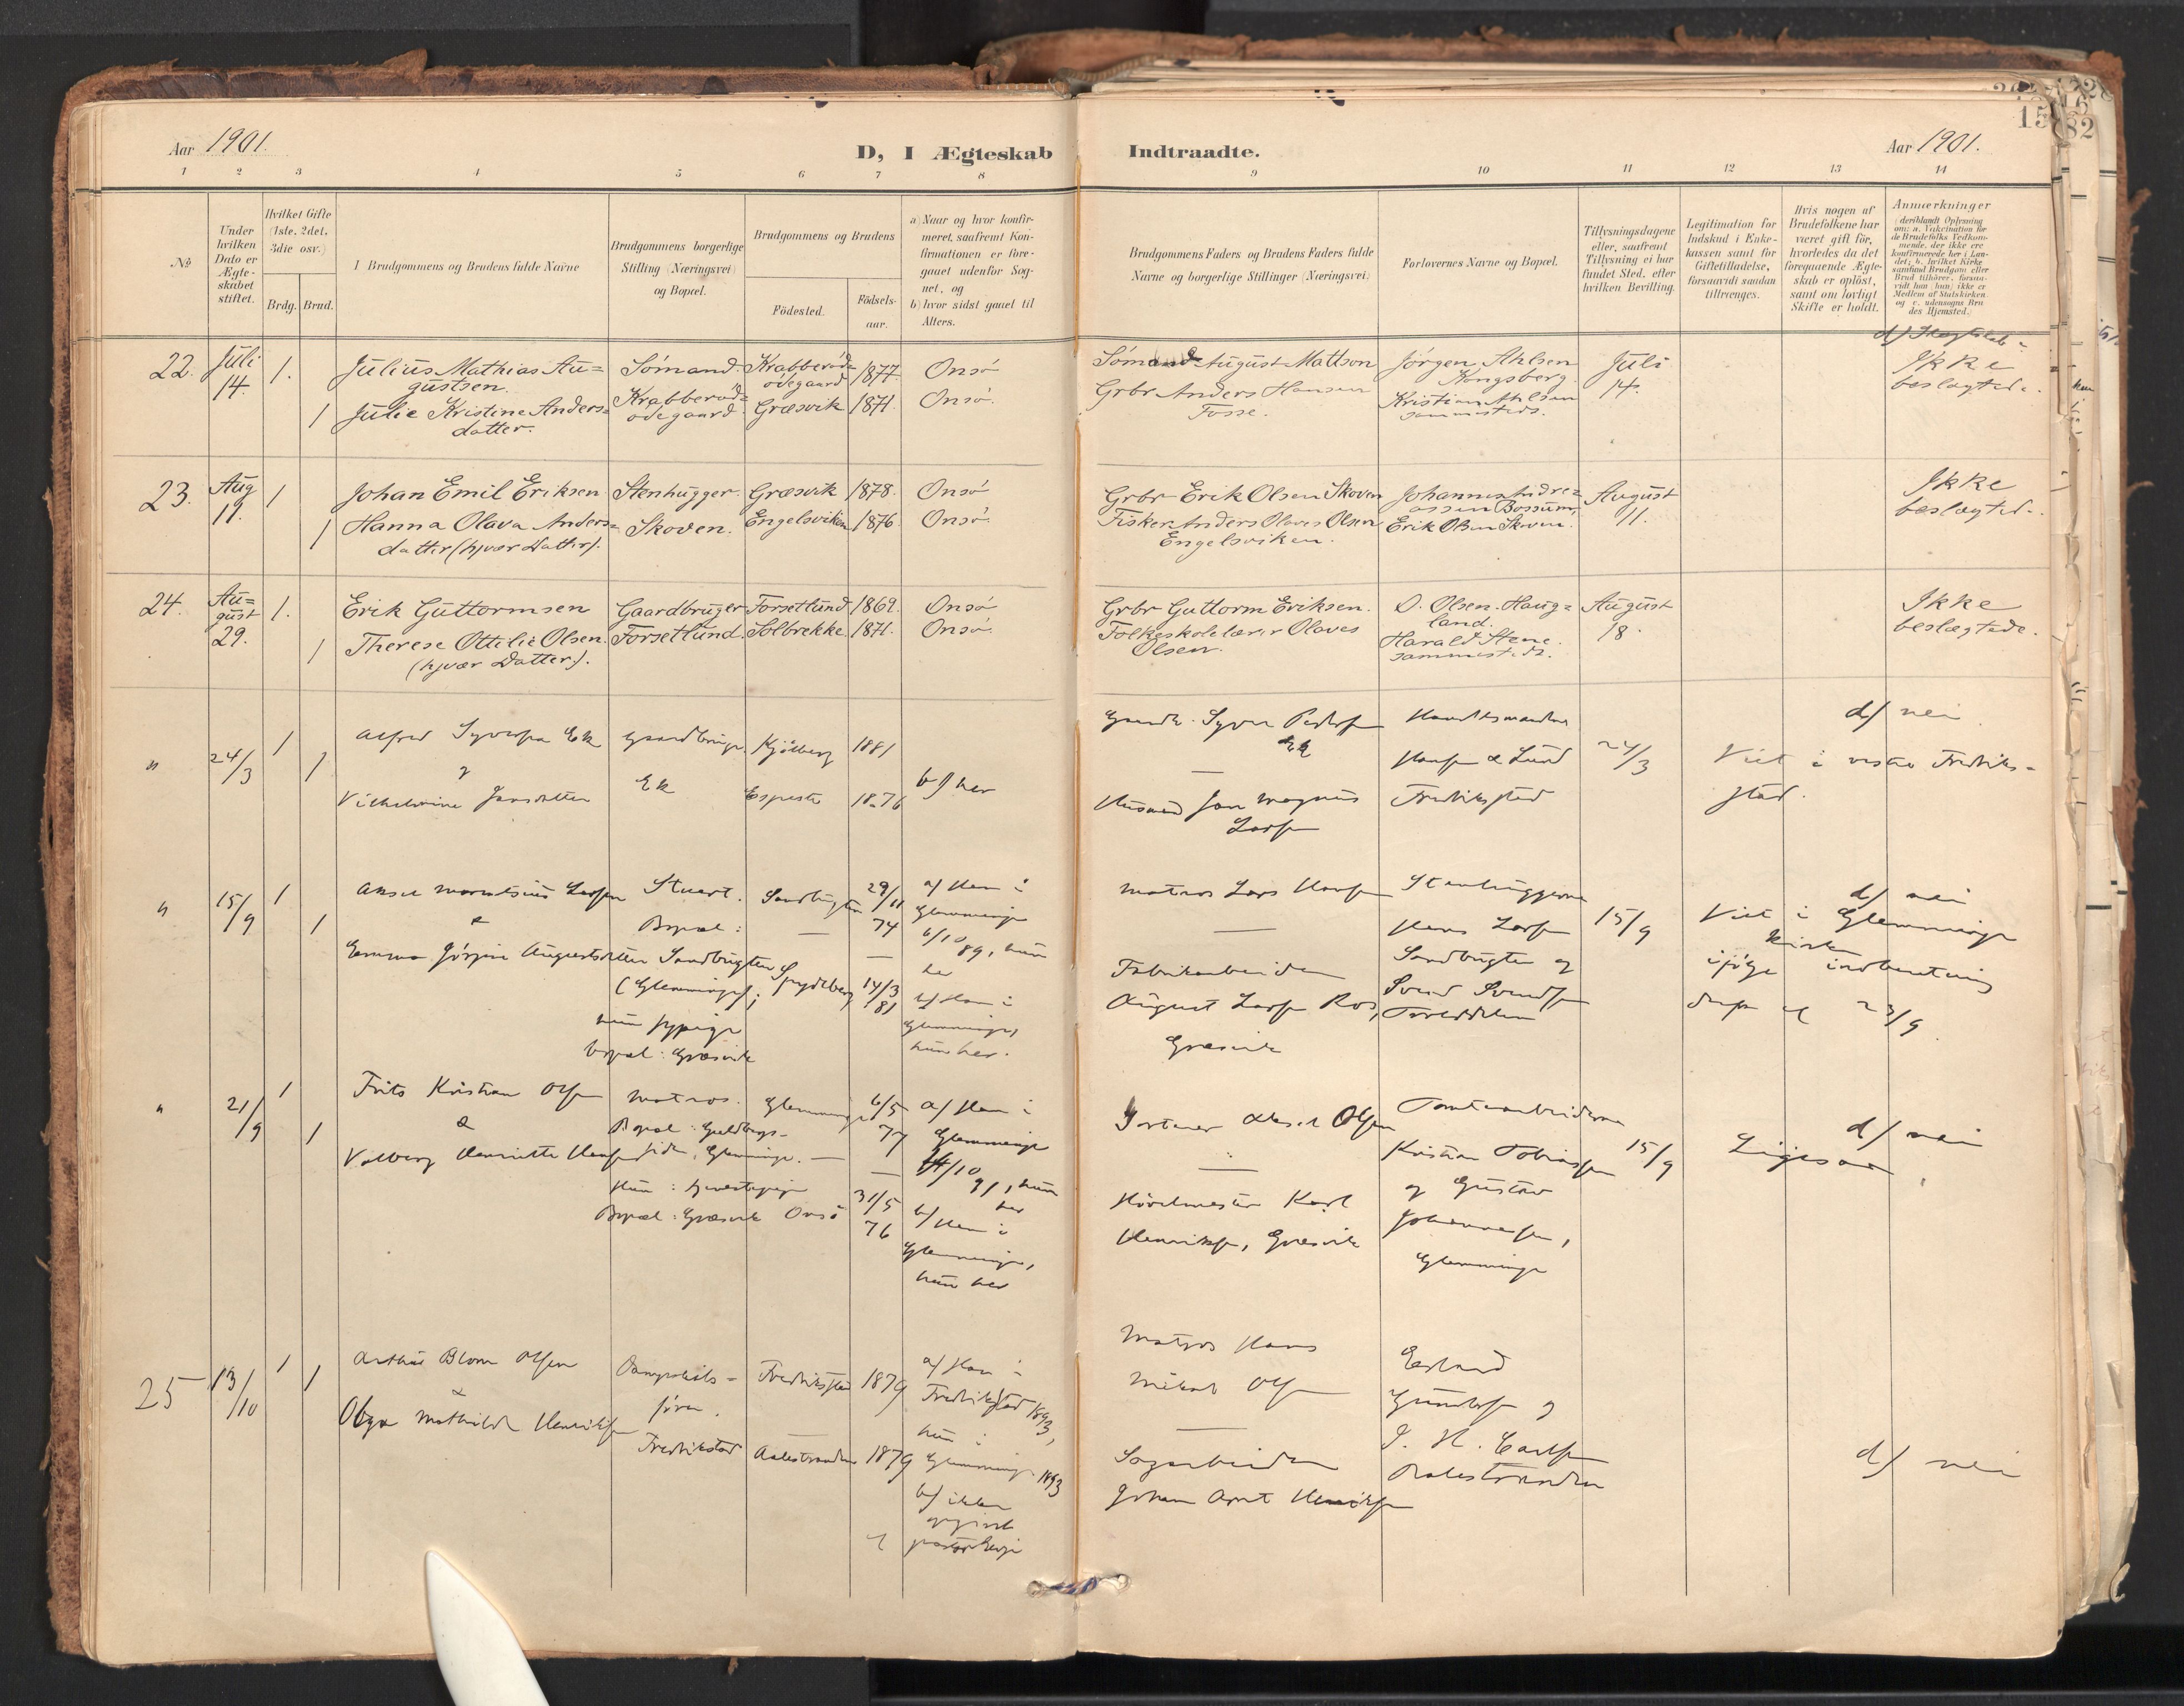 Aar 1901.
D, I Ægteskab Indtraadte.
Aar 1901.
15
82
1 2 3 4 5 6 7 8 9 10 11 12 13 14
No
Under hvilken Dato er Ægte-skabet stiftet.
Hvilket Gifte (1ste. 2det. 3die osv.)
Brdg. Brud.
Brudgommens og Brudens fulde Navne
Brudgommens borgerlige Stilling (Næringsvei) og Bopæl.
Brudgommens og Brudens
Födested.
Födsels-aar.
a) Naar og hvor konfir-meret, saafremt Kon-firmationen er fore-gaaet udenfor Sog-net, og
b) hvor sidst gaaet til Alters.
Brudgommens Faders og Brudens Faders fulde
Navne og borgerlige Stillinger (Næringsvei)
Forlovernes Navne og Bopæl.
Tillysningsdagene eller, saafremt Tillysning ei har fundet Sted, efter hvilken Bevilling.
Legitimation for Indskud i Enke-kassen samt for Giftetilladelse, forsaavidt saadan tiltrænges.
Hvis nogen af Brudefolkene har været gift før, hvorledes da det foregaaende Ægte-skab er oplöst, samt om lovligt Skifte er holdt.
Anmærkninger
(deriblandt Oplysning om: a. Vakcination for de Brudefolks Vedkom-mende, der ikke ere konfirmerede her i Lan-det; b. hvilket Kirke samfund Brudgom eller Brud tilhører, forsaa-vidt han (hun) ikke er Medlem af Statskirken og c. udensogns Bru des Hjemsted.)
22. Juli 14. 1. Julius Mathias Au=
gustsen.
1 Julie Kristine Anders=
datter.
Sømand.
Krabberød=
ødegaard.
Krabberød=
ødegaard 1877. Onsø
Græsvik 1871. Onsø.
Sømand August Mattson
Grbr Anders Hansen
Fosse.
Jørgen Ahlsen
Kongsberg.
Kristian Ahlsen
sammesteds.
Juli
14.
Ikke
beslægtede.
23. Aug 19. 1 Johan Emil Eriksen
1 Hanna Olava Anders=
datter (hjvær Datter).
Stenhugger.
Skoven.
Græsvik 1878. Onsø
Engelsviken 1876. Onsø.
Grbr Erik Olsen Skoven
Fisker Anders Olaves Olsen
Engelsviken.
Johannes Andre=
assen Bossum,
Erik Olsen Skoven.
August
11.
Ikke
beslægted.
24. Au=
gust
29. 1. Erik Guttormsen
1 Therese Ottilie Olsen.
(hjvær Datter).
Gaardbruger
Forsetlund.
Forsetlund 1869. Onsø
Solbrekke 1871. Onsø.
Grbr Guttorm Eriksen.
Folkeskolelærer Olaves
Olsen.
O. Olsen Haug=
land.
Harald Stene.
sammesteds.
August
18.
Ikke
beslægtede.
" 24/3 1 1 Alfred Syversen Ek
Vilhelmine Jansdatter
Gaardbruger
Ek
Kjölberg 1881
1876
b/ her
Gaardb. Syver Pedersen
Ek
Husmand Jan Magnus
Larsen
Handelsmændene
Hansen & Lund
Fredriksstad
24/3
d/ nei
Viet i vestre Fredriks-
stad.
" 15/9 1 1 Larsen
&
Emma Jörgine Augustsdatter
Stuert.
Bopæl:
Sandbugten
(Glemminge);
hun sypige
bopæl: Græsvik
Sandbugten 29/11 74
Spydeberg 14/3 81
a/ Han i
Glemminge
6/10 89, hun
her
b/ Han i
Glemminge,
hun her.
Matros Lars Hansen
Fabrikarbeider
August Larsen Ros,
Græsvik
Stenhuggerne
Hans Larsen
Sandbugten og
Svend Svendsen
15/9
d/ nei
Viet i Glemminge
Kirke
ifölge indberetning
23/9
" 21/9 1 1 Frits Kristian Olsen
&
Valborg Henriette Hansen
Matros.
Glemminge.
Bopæl: Græsvik Onsö
Glemminge 6/5 77
31/5 76
a/ Han i
Glemminge
/10 91, hun
her
b/ Han i
Glemminge,
hun her
Gartner Aksel Olsen
Hövelmester Karl
Henriksen, Græsvik
Tomtearbeiderne
Kristian Tobiassen
og Gustav
Johannesen,
Glemminge
15/9
Ligesaa
d/ nei
25 13/10 1 1 Arthur Blom Olsen
&
Olga Mathilde Henriksen
Dampskibs-
förer.
Fredrikstad
Fredriksstad 1879
Aalestranden 1879
a/ Han i
Fredriksstad 1893,
hun i
Glemminge 1893
b/ ikke
opgivet
Matros Hans
Mikal Olsen
Sagarbeider
Johan Arnt Henriksen
Erland
Gundersen og
Aalestranden
d/ nei